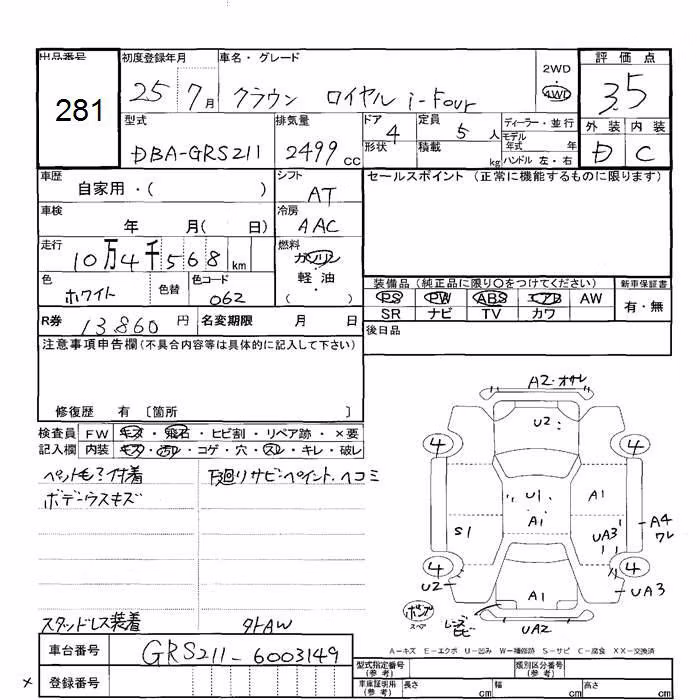 出品番号 初度登録年月 車名・グレード 2WD 評価点
281 25 7月 クラウン ロイヤル i-Four 4WD 3.5
型式 排気量 ドア 4 定員 5人 ディーラー・並行 外装 内装
DBA-GRS211 2499cc 形状 積載 kg モデル年式 年 D C
ハンドル 左・右
車歴 自家用・( ) シフト AT セールスポイント (正常に機能するものに限ります)
車検 年 月( 日) 冷房 AAC
走行 10万4千568km 燃料 ガソリン
軽・油
( )
色 ホワイト 色替 色コード 062
装備品(純正品に限り○をつけてください) 新車保証書
PS PW ABS エアB AW 有・無
SR ナビ TV カワ
R券 13860円 名変期限 月 日 後日品
注意事項申告欄(不具合内容等は具体的に記入して下さい)
修復歴 有 〔箇所 〕
検査員 FW キズ・飛石・ヒビ割・リペア跡・×要
記入欄 内装 キズ・汚レ・コゲ・穴・スレ・キレ・破レ
付着 下廻りサビ・ペイント・ヘコミ
ボデーウスキズ
スタッドレス装着 外AW
A2・オサレ
U2
4 4
U1 A1
A1
S1 UA3 A4
ワレ
4 4
U2 A1 UA3
レンズヒビ
UA2
スペア
A-キズ E-エクボ U-凹み W-補修跡 S-サビ C-腐食 XX-交換済
車台番号 GRS211-6003149
登録番号
×
型式指定番号(参考) 類別区分番号(参考)
車庫証明用(参考) 長さ cm 幅 cm 高さ cm